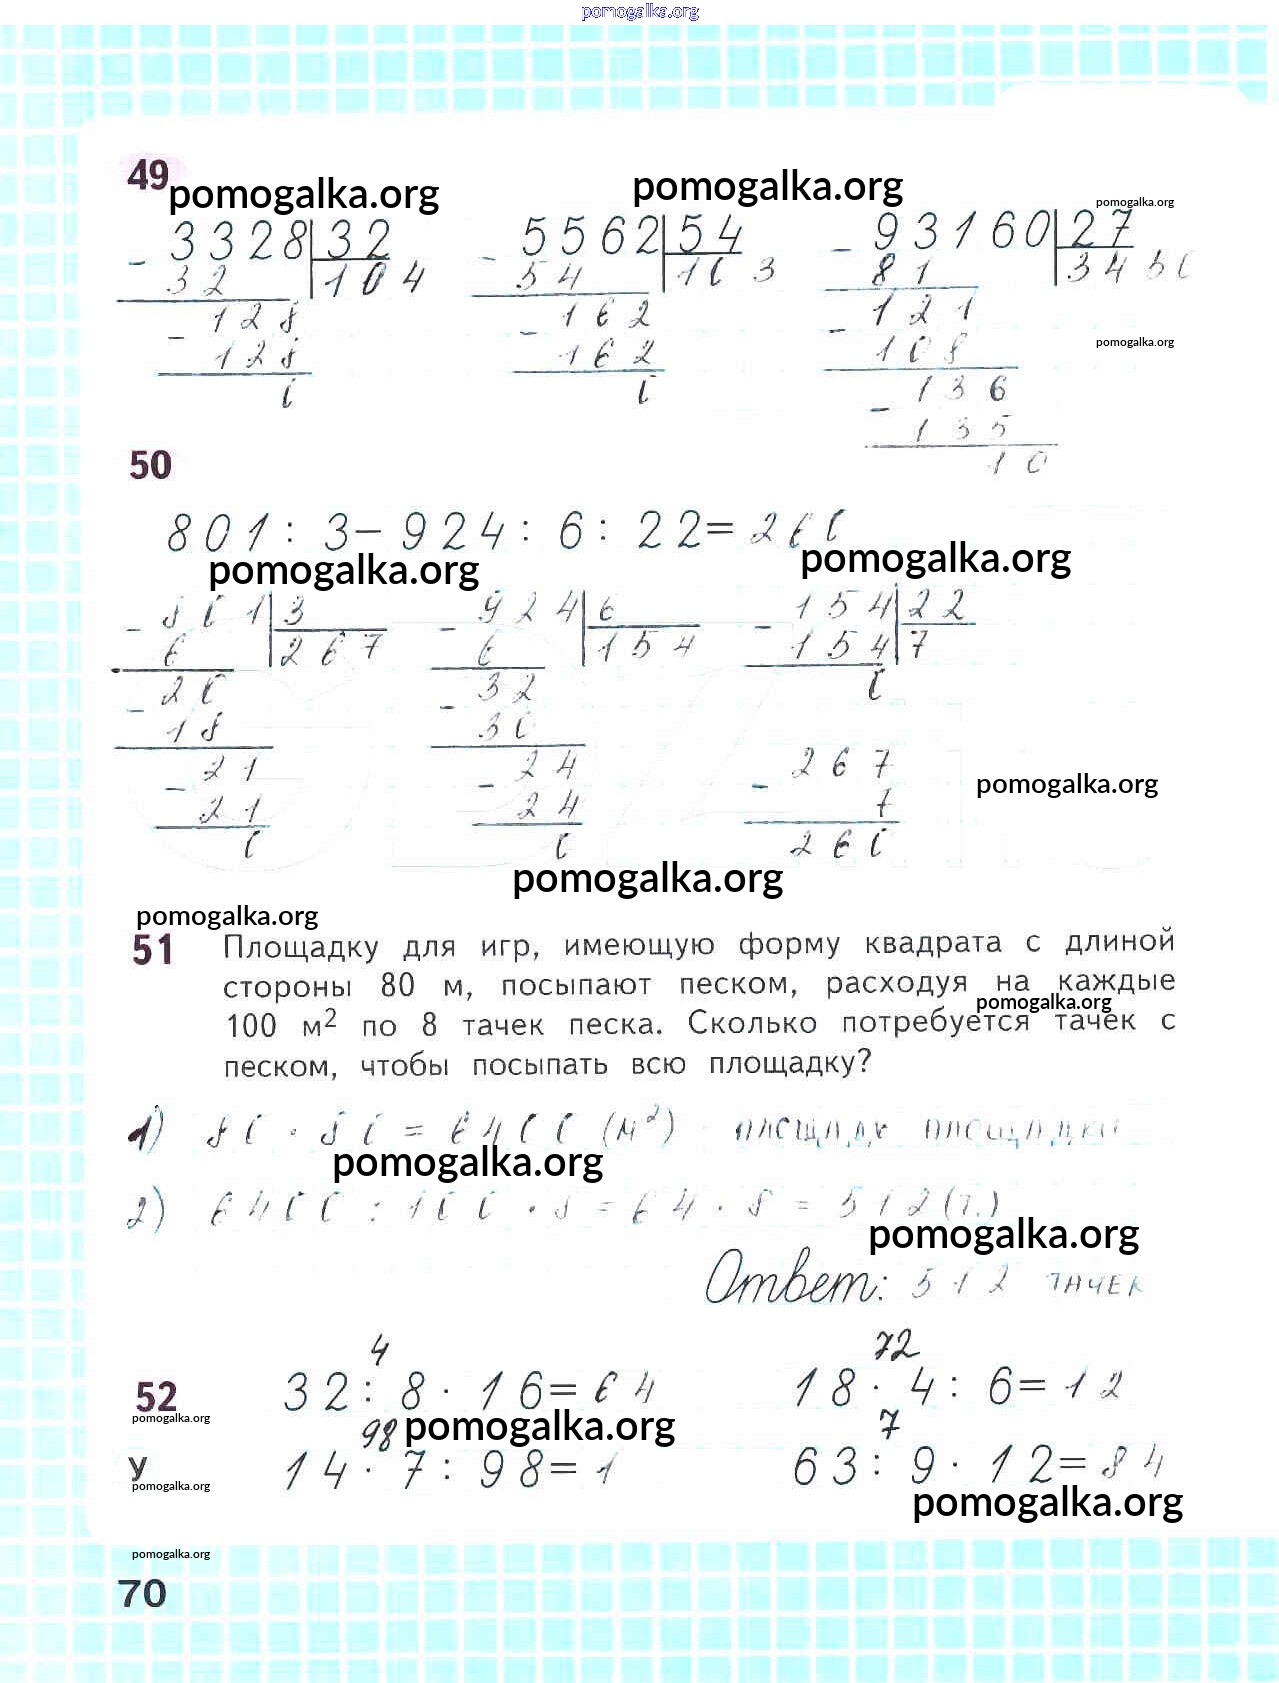 pomogalka.org
49
pomogalka.org pomogalka.org pomogalka.org
- 3328 | 32 - 5562 | 54 - 93160 | 27
32 104 54 103 81 3450
- 128 - 162 - 121
128 162 108 pomogalka.org
0 0 - 136
135
10
50
801 : 3 − 924 : 6 : 22 = 260
pomogalka.org pomogalka.org
- 801 | 3 - 924 | 6 - 154 | 22
6 267 6 154 154 7
- 20 - 32 0
18 30
- 21 - 24 - 267
21 24 7 pomogalka.org
0 0 260
pomogalka.org
pomogalka.org
51 Площадку для игр, имеющую форму квадрата с длиной
стороны 80 м, посыпают песком, расходуя на каждые
pomogalka.org
100 м² по 8 тачек песка. Сколько потребуется тачек с
песком, чтобы посыпать всю площадку?
1) 80 · 80 = 6400 (м²) площадь площадки
pomogalka.org
2) 6400 : 100 · 8 = 64 · 8 = 512 (т.)
pomogalka.org
Ответ: 512 тачек
4 72
52 32 : 8 · 16 = 64 18 · 4 : 6 = 12
pomogalka.org
98 pomogalka.org 7
У 14 · 7 : 98 = 1 63 : 9 · 12 = 84
pomogalka.org pomogalka.org
pomogalka.org
70